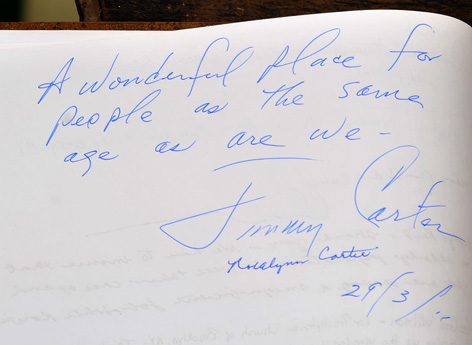 A wonderful place for
people as the same
age as are we -
Jimmy Carter
Rosalynn Carter
29/3/..